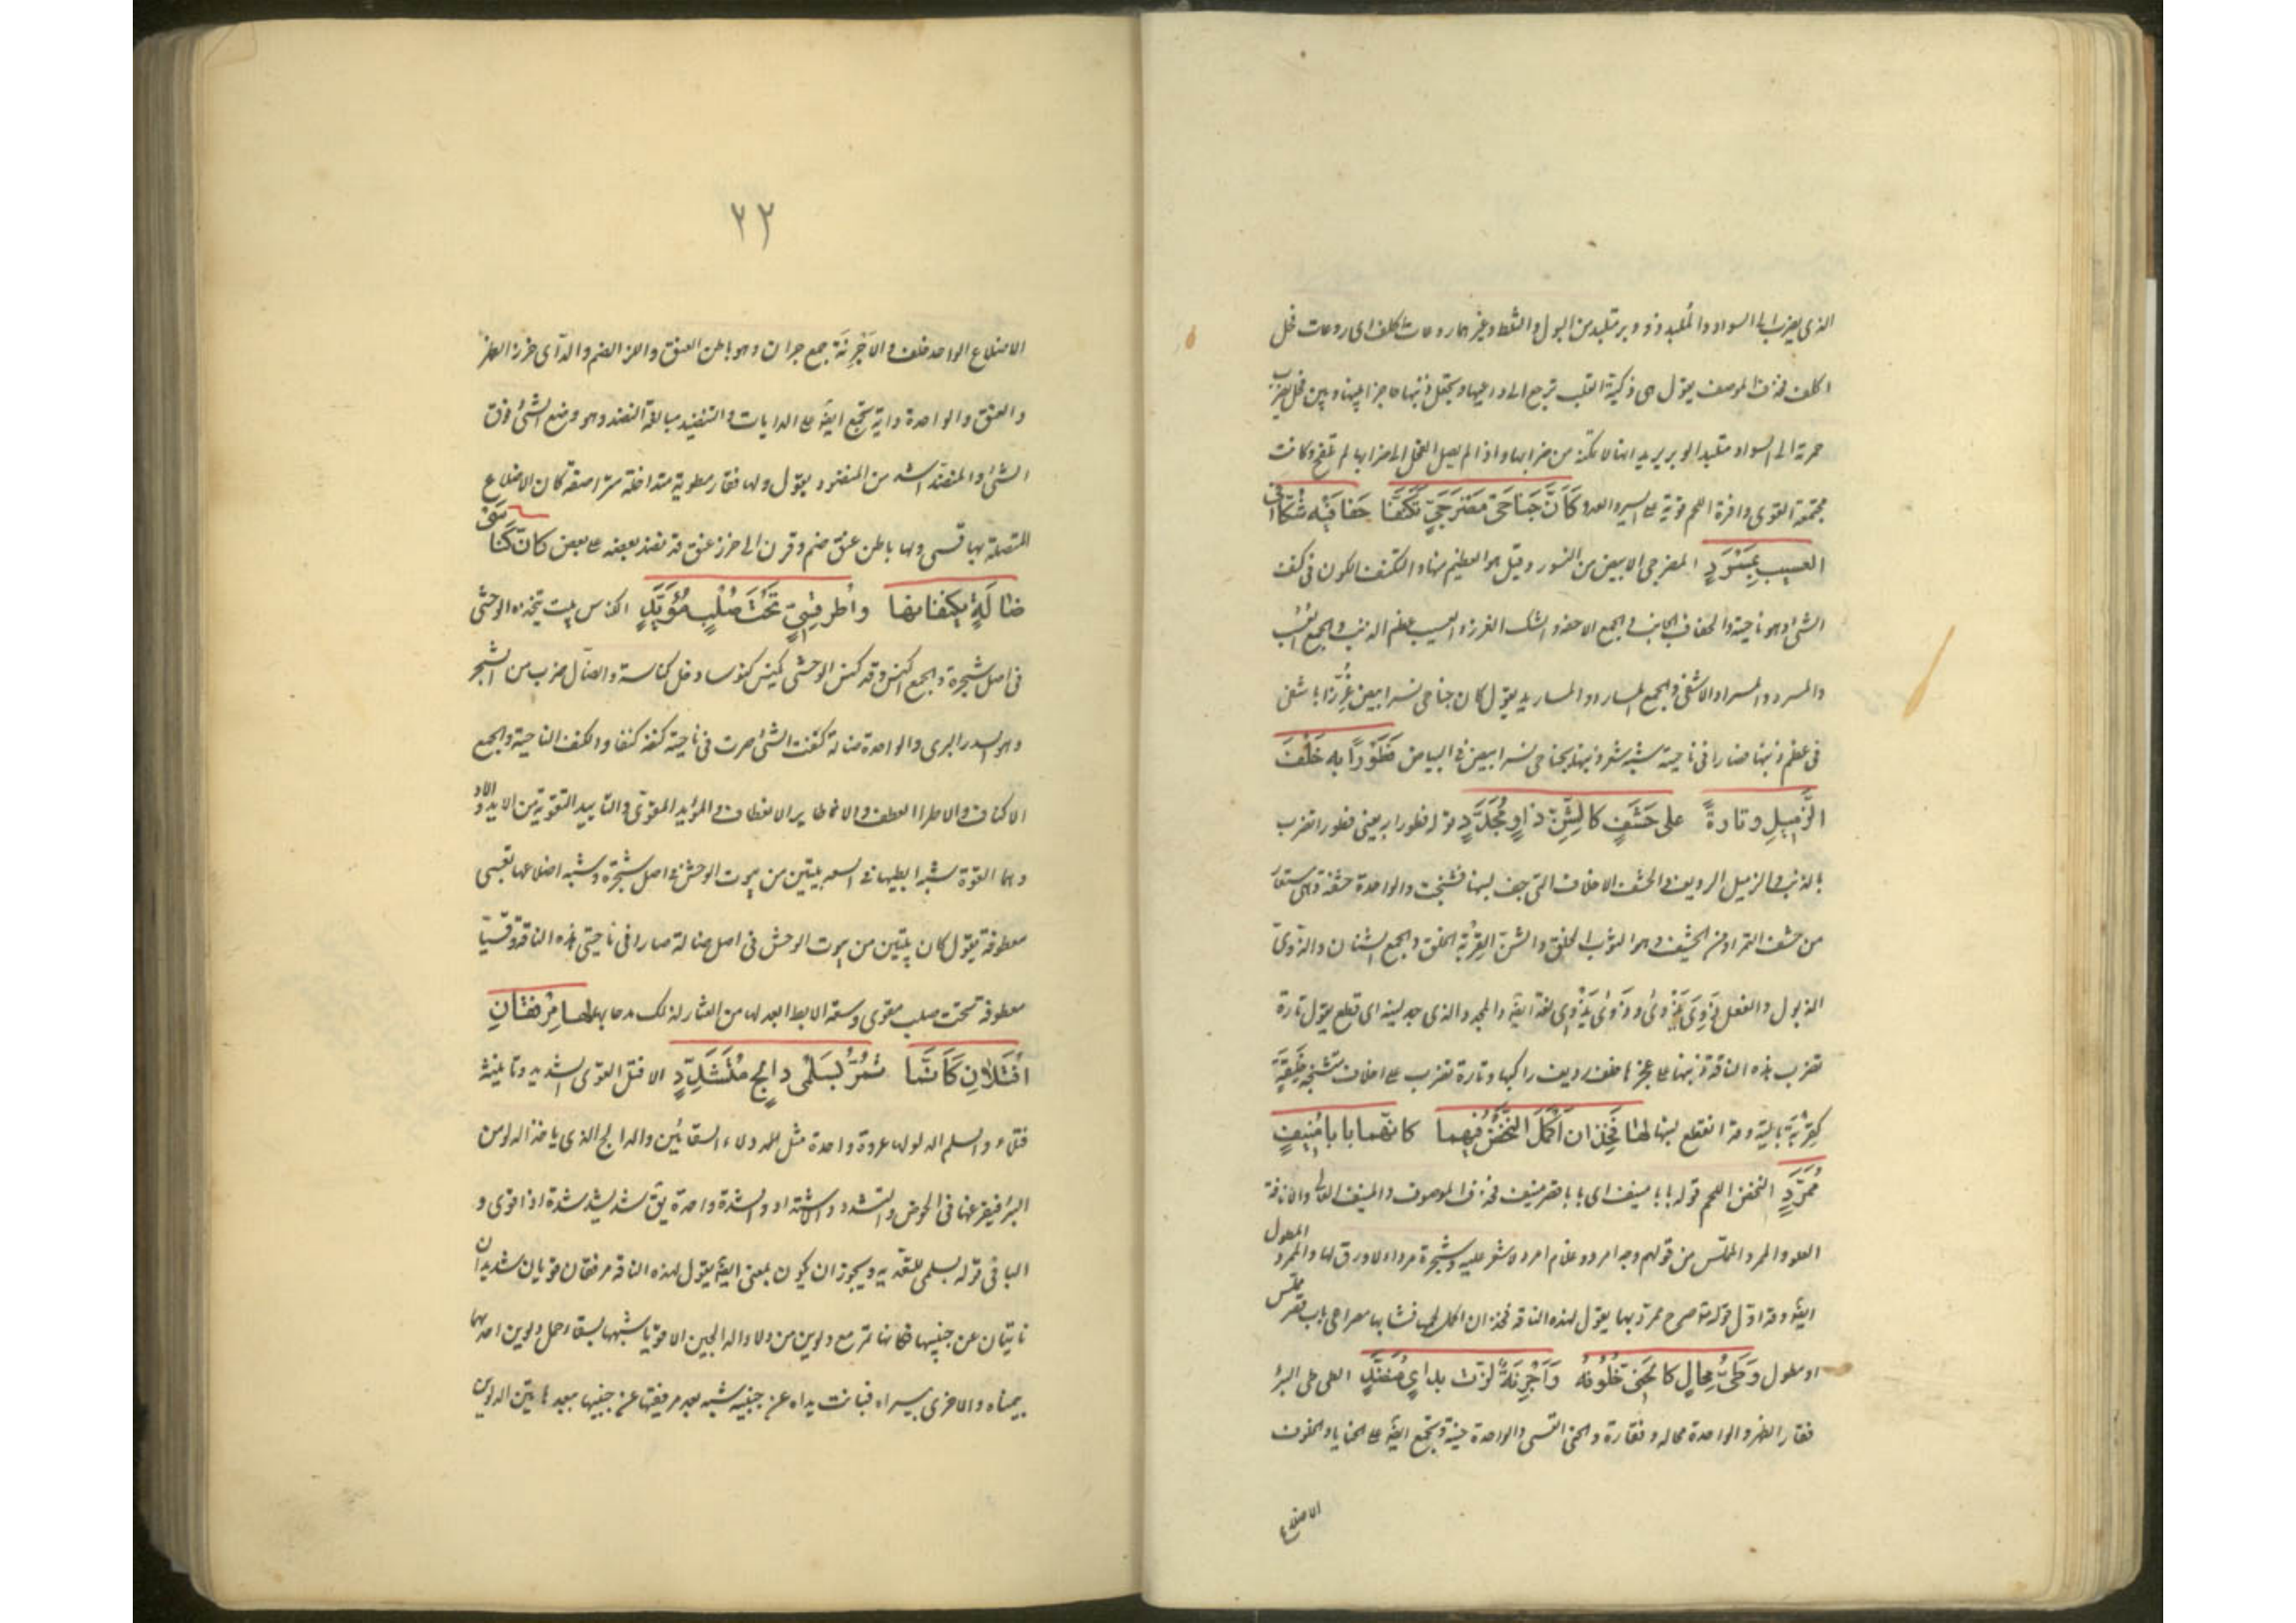 الذي يضرب الى السواد والملبد ذو وبر متلبد من البول والثلط وغيرهما روعات اكلف اى روعات فحل
اكلف فحذف الموصوف يقول هى ذكية القلب ترجع الى داعيها وتجعل ذنبها حاجزا بينها وبين فحل يضرب
حمرته الى السواد متلبد الوبر يريد انها لا تمكنه من ضرابها واذا لم يصل الفحل الى ضرابها لم تلقح وكانت
مجتمعة القوى وافرة اللحم قوية على السير والعدو كَاَنَّ جَنَاحَىْ مَضْرَحِيٍّ تَكَنَّفَا حَفَافَيْهِ شُكَّا فى
العسيب بِمِسْرَدٍ المضرحى الابيض من النسور وقيل هو العظيم منها والتكنف الكون فى كنف
الشئ وهو ناحيته والحفاف الجانب والجمع الاحفه والشك الغرز والعسيب عظم الذنب والجمع العُسُب
والمسرد والمسراد الاشفى والجمع المسارد والمساريد يقول كان جناحى نسر ابيض غُرِزَا باشفى
فى عظم ذنبها فصارا فى ناحيته شبه شعر ذنبها بجناحى نسر ابيض فى البياض فَطَوْرًا بِهِ خَلْفَ
الزَّمِيلِ وتارةً على حَشَفٍ كالشَّنِّ ذاوٍ مُجَدَّدٍ قوله فطورا به يعنى فطورا تضرب
بالذنب والزميل الرديف والحشف الاخلاف التى جف لبنها فتشنجت والواحدة حشفة وهى مستعار
من حشف التمر او من الحشيف وهو الثوب الخلق والشن القِرْبَة الخلق والجمع الشنان والذوى
الذبول والفعل ذَوَى يَذْوِى وذَوِىَ يَذْوَى لغة ايضا والمجدد الذى جد لبنه اى قطع يقول تارة
تضرب هذه الناقة ذنبها على عجزها خلف رديف راكبها وتارة تضرب على اخلاف متشنجة خَلِقَةٍ
كَقِرْبَةٍ بالية وقد انقطع لبنها لها فَخِذَانِ اُكْمِلَ النَّحْضُ فِيهِما كانّهما بابا مُنِيفٍ
مُمَرَّدٍ النحض اللحم قوله بابا منيف اى بابا قصر منيف فحذف الموصوف والمنيف العالى والانافة
العلو والممرد المملّس من قولهم وجه امرد وغلام امرد لا شعر عليه وشجرة مرداء لا ورق لها والممرد المطول
ايضا وقد اوّل قوله تعالى صرح ممرد بهما يقول لهذه الناقة فخذان اكمل لحمهما فشابها مصراعى باب قصر مملس
او مطول وَطَىُّ مَحَالٍ كالحَنِىِّ خُلُوفُهُ وَاَجْرِنَةٌ لُزَّت بداىٍ مُنَضَّدٍ الطى طى البئر
فقار الظهر والواحدة محاله وفقارة والحنى القسى والواحدة حنية وتجمع ايضا على الحنايا والخلوف
الاضلاع
٢٢
الاضلاع الواحد خلف والاَجْرِنَة جمع جران وهو باطن العنق واللز الضم والدآى خرز الظهر
والعنق والواحدة داية تجمع ايضا على الدايات والتنضيد مبالغة النضد وهو وضع الشئ فوق
الشئ والمنضد اشد من المنضود يقول ولها فقار مطوية متداخلة متراصفة كان الاضلاع
المتصلة بها قسى ولها باطن عنق ضم وقرن الى خرز عنق قد نضد بعضه على بعض كانّ كِنَاسَىْ
ضالَةٍ يكنفانها واَطْرَ قِسِىٍّ تَحْتَ صُلْبٍ مُؤَيَّدٍ الكناس بيت يتخذه الوحشى
فى اصل شجرة والجمع الكنس وقد كنس الوحشى يكنس كنوسا دخل كناسه والضال ضرب من الشجر
وهو السدر البرى والواحدة ضالة كنفت الشئ صرت فى ناحيته كنفه كنفا والكنف الناحية والجمع
الاكناف والاطر العطف والانئطار الانعطاف والمؤيد المقوى والتاييد التقوية من الايد والاد
وهما القوة شبه ابطيها فى السعه بيتين من بيوت الوحش فى اصل شجرة وشبه اضلاعها بقسى
معطوفة يقول كان بيتين من بيوت الوحش فى اصل ضالة صارا فى ناحيتى هذه الناقة وقسيا
معطوفة تحت صلب مقوى وسعة الابط ابعد لها من العثار لذلك مدحها بها لها مِرْفَقانِ
اَفْتَلانِ كَاَنَّما تَمُرُّ بِسَلْمَىْ دالِجٍ مُتَشَدِّدٍ الافتل القوى الشديد وتانيثه
فتلاء والسلم الدلو لها عروة واحدة مثل دلاء السقائين والدالج الذى ياخذ الدلو من
البئر فيفرغها فى الحوض والتشدد والاشتداد والشدة واحدة يق شد يشد شدة اذا قوى و
الباء فى قوله بسلمى للتعدية ويجوز ان يكون بمعنى ايضا يقول لهذه الناقة مرفقان قويان شديدان
نايتان عن جنبيها فكانها تمر مع دلوين من دلاء الدالجين الاقوياء شبهها بسقاء حمل دلوين احدهما
بيمناه والاخرى بيسراه فبانت يداه عن جنبيه شبه بعد مرفقيها عن جنبيها ببعد هاتين الدلوين